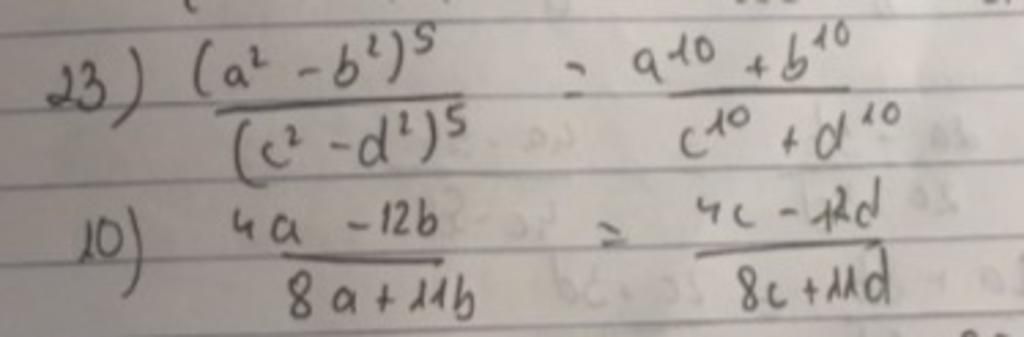 23) (a² - b²)⁵ / (c² - d²)⁵ = a¹⁰ + b¹⁰ / c¹⁰ + d¹⁰
10) 4a - 12b / 8a + 11b = 4c - 12d / 8c + 11d